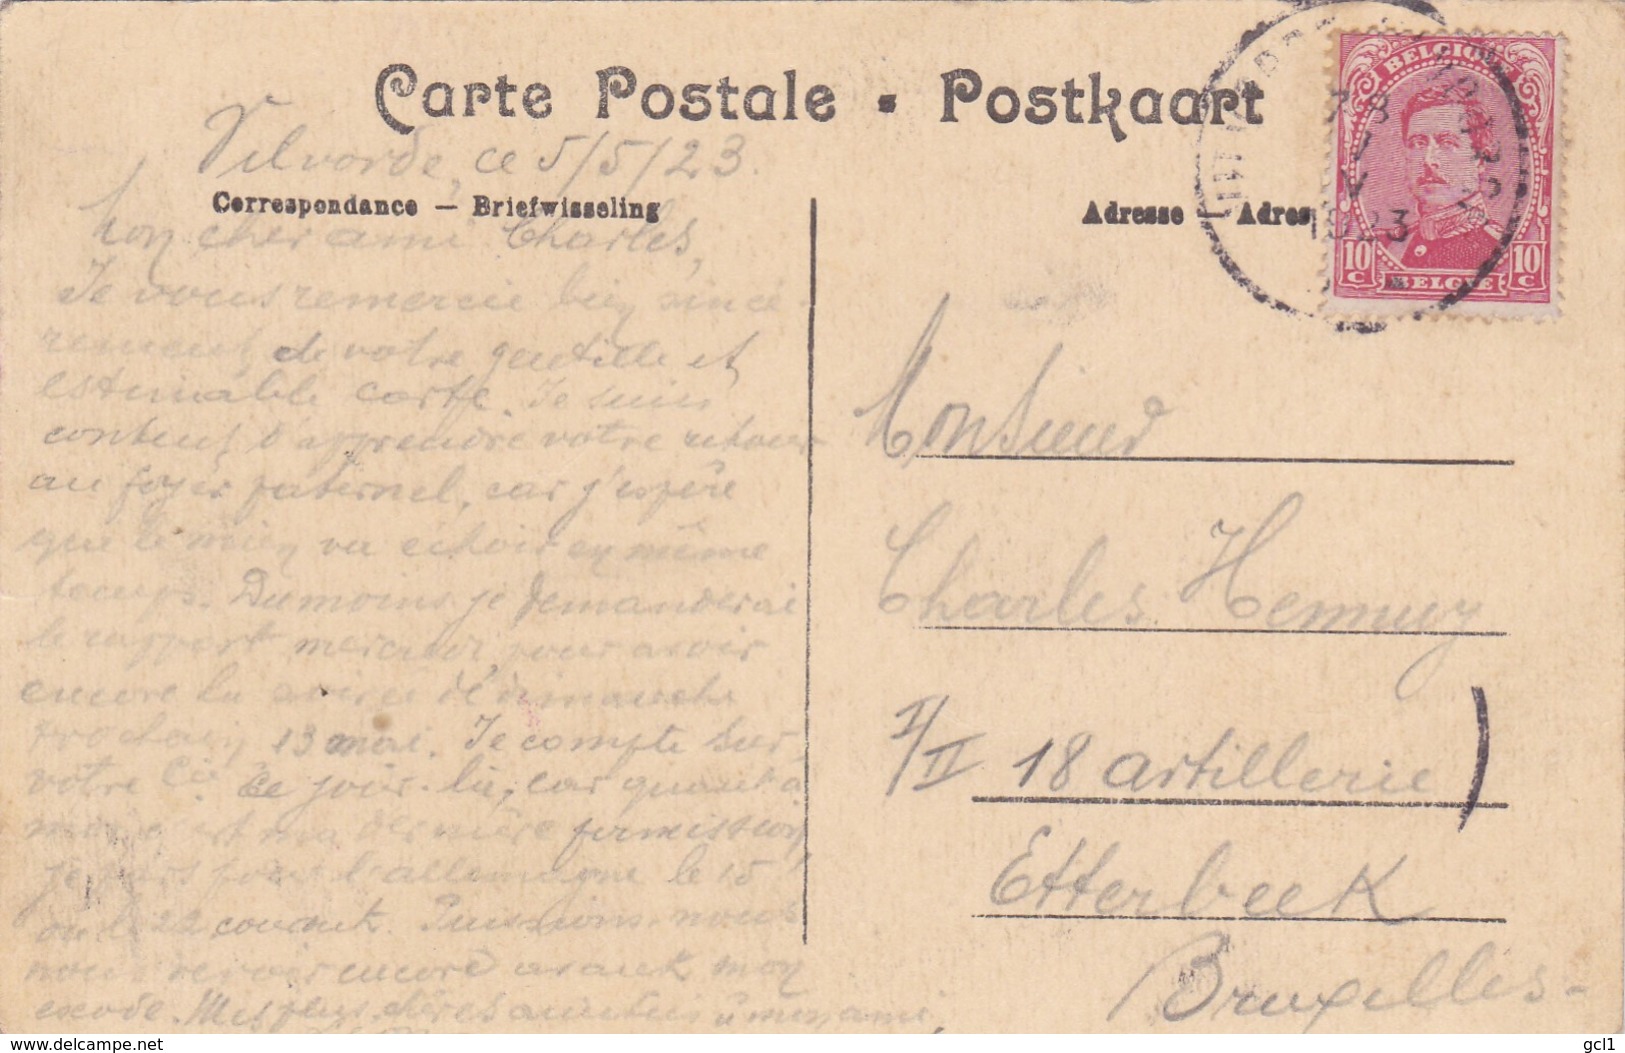 Carte Postale - Postkaart
Vilvorde, ce 5/5/23.
Correspondance — Briefwisseling
Mon cher ami Charles,
Je vous remercie bien since-
rement, de votre gentille et
estimable carte. Je suis
content d'apprendre votre retour
au foyer paternel, car j'espère
que le mien va échoir en même
temps. Du moins je demanderai
le rapport mercredi, pour avoir
encore la soirée de dimanche
prochain, 13 mai. Je compte sur
votre Cie. ce jour-là, car quant à
moi c'est ma dernière permission,
je pars pour l'allemagne le 15
ou le 22 courant. Puissions-nous
nous revoir encore avant mon
exode. Mes plus chères amitiés à mon ami,
Adresse — Adres
BELGIQUE
1923
10 c
BELGIE
10 c
Monsieur
Charles Hennuy
I/II 18 artillerie)
Etterbeek
Bruxelles-
https://www.delcampe.net
gcl1